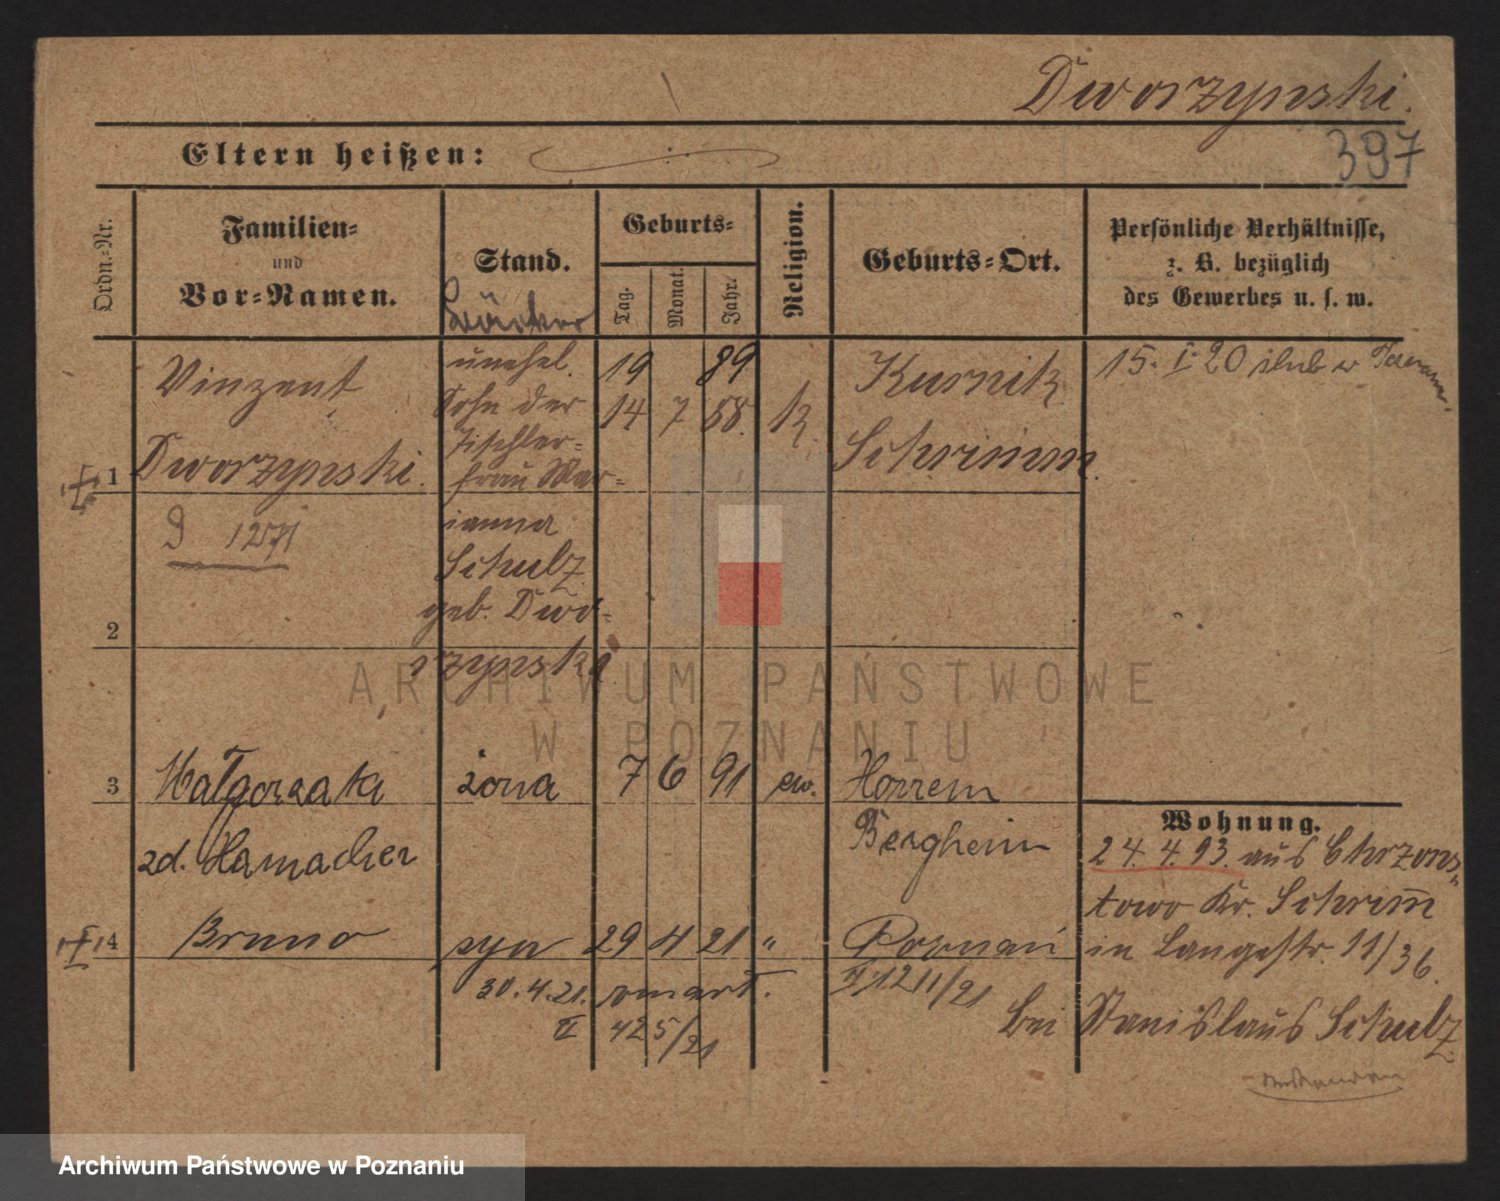 Dworzynski.
397
Eltern heißen:
Ordn.-Nr.
Familien-
und
Vor-Namen.
Stand.
Geburts-
Tag.
Monat.
Jahr.
Religion.
Geburts-Ort.
Persönliche Verhältnisse,
z. B. bezüglich
des Gewerbes u. s. w.
Vinzent
unehel.
19 89
Kurnik
15. I. 20 ślub w
Sohn der
14 7 88. k.
Tischler-
1 Dworzynski.
frau Mar-
Schrimm.
ianna
Schulz
geb. Dwo-
2
rzynska
ARCHIWUM PAŃSTWOWE
W POZNANIU
3 Małgorzata żona 7 6 91 ew. Horrem
zd. Hamacher
Bergheim
Wohnung.
24. 4. 93. aus Chrzons-
towo Kr. Schrim̄
4 Bruno syn 29 4 21 " Poznań
in Langestr. 11/36.
30. 4. 21. zmarł.
II 425/21
bei Stanislaus Schulz
Archiwum Państwowe w Poznaniu